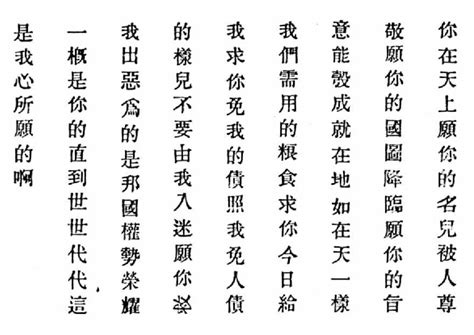 你在天上願你的名兒被人尊
敬願你的國圖降臨願你的旨
意能彀成就在地如在天一樣
我們需用的粮食求你今日給
我求你免我的債照我免人債
的樣兒不要由我入迷願你
我出惡爲的是邦國權勢榮耀
一概是你的直到世世代代這
是我心所願的啊